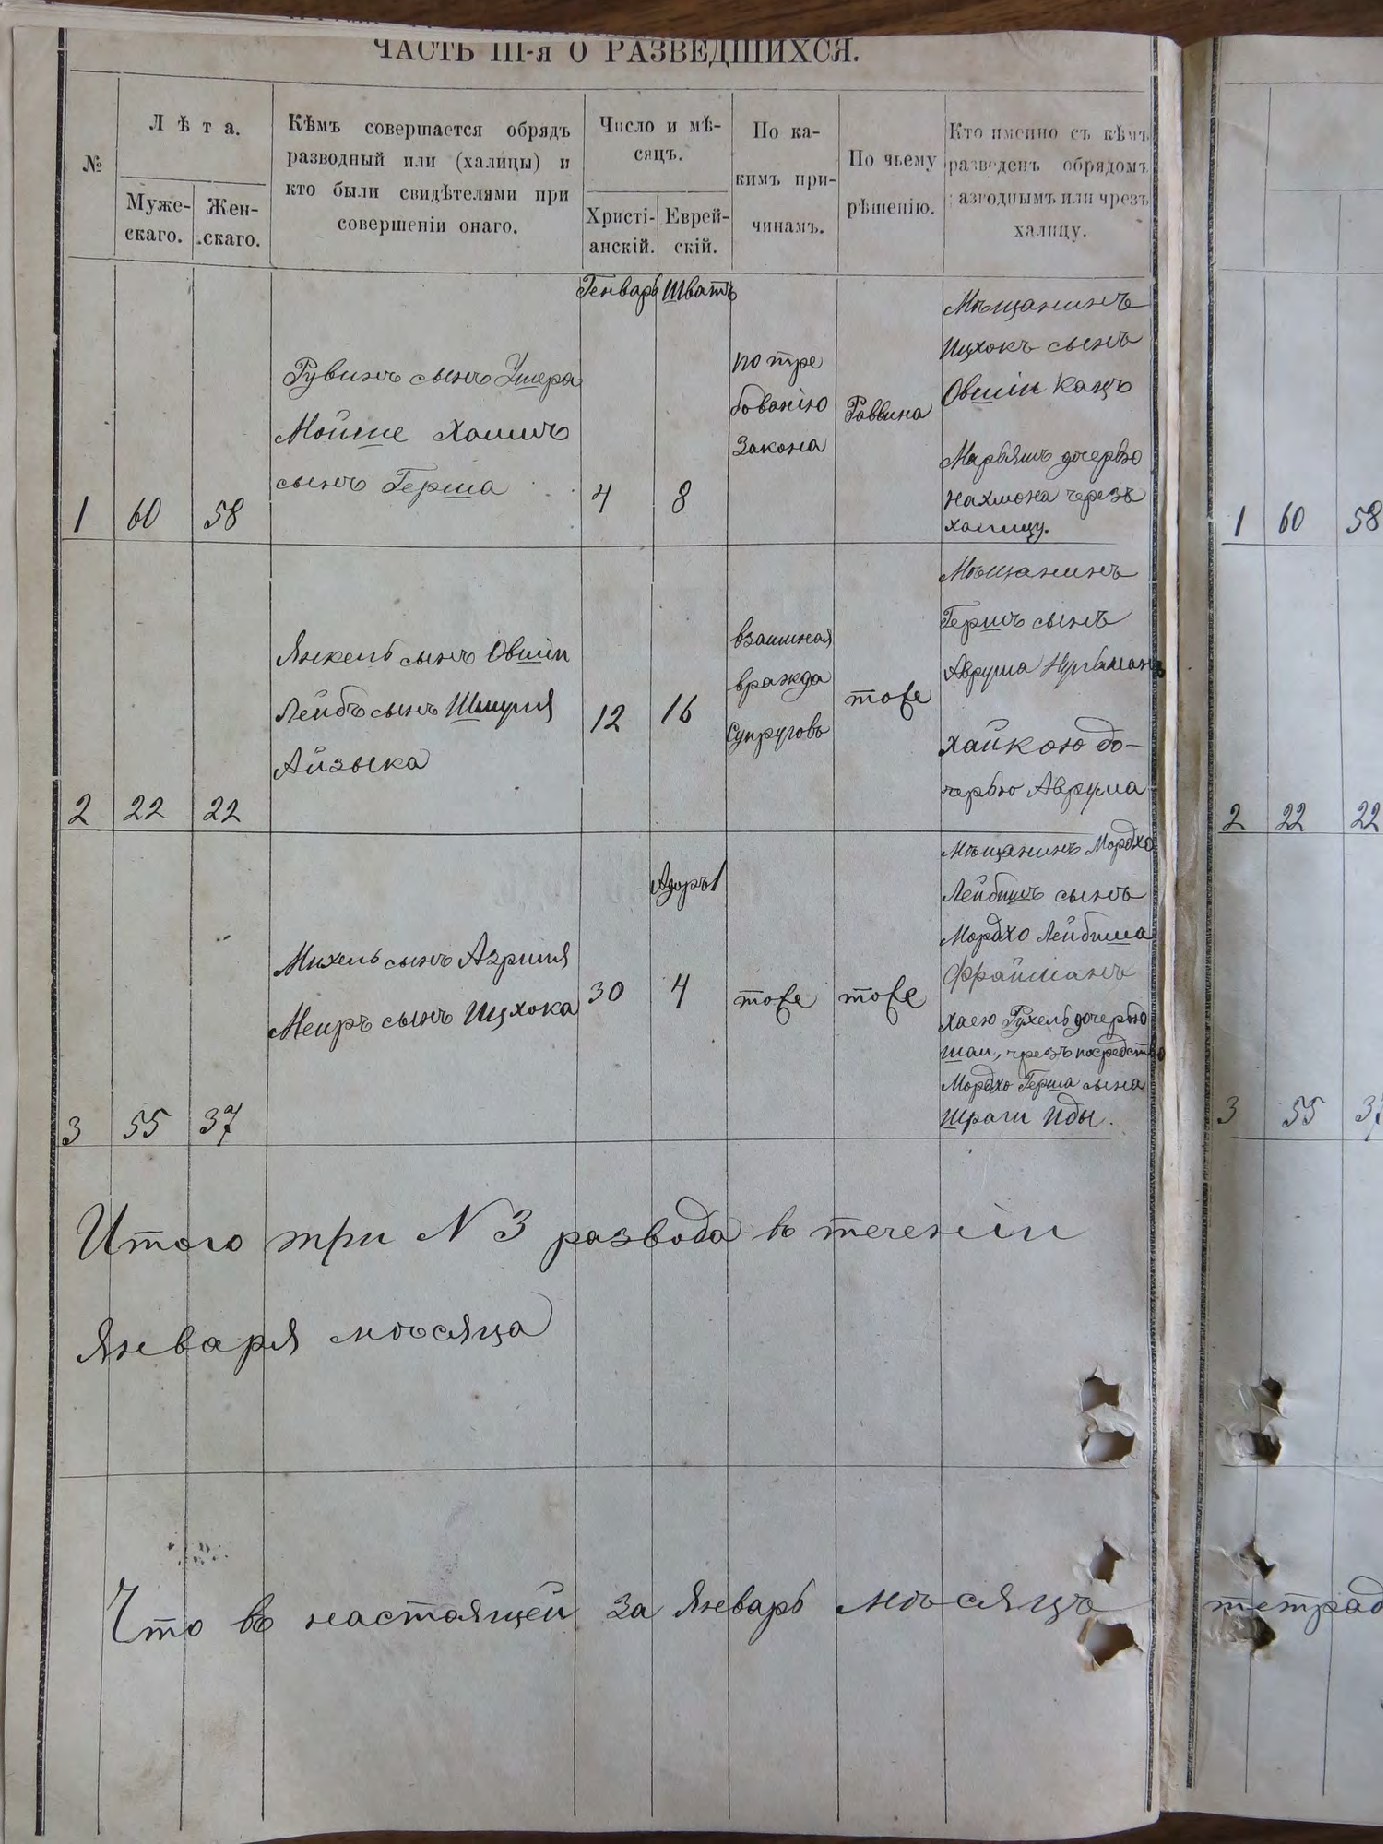 ЧАСТЬ III-я О РАЗВЕДШИХСЯ.
№
Лѣта.
Муже-
скаго.
Жен-
скаго.
Кѣмъ совершается обрядъ
разводный или (халицы) и
кто были свидѣтелями при
совершеніи онаго.
Число и мѣ-
сяцъ.
Христі-
анскій.
Еврей-
скій.
По ка-
кимъ при-
чинамъ.
По чьему
рѣшенію.
Кто именно съ кѣмъ
разведенъ обрядомъ
азводнымъ или чрезъ
халицу.
1
60
58
Рувинъ сынъ Ушера
Мойше Хаимъ
сынъ Герша
Генварь
4
Шватъ
8
по тре
бованію
Закона
Раввина
Мѣщанинъ
Ицхокъ сынъ
Овшіи Кацъ
Марьямъ дочерью
Нахмона черезъ
халицу.
2
22
22
Янкель сынъ Овшіи
Лейбъ сынъ Шмуля
Айзыка
12
16
взаимная
вражда
Супруговъ
тоже
Мѣщанинъ
Гершъ сынъ
Аврума
Хайкою до-
черью Аврума
3
55
37
Михель сынъ Азриля
Меиръ сынъ Ицхока
30
Адаръ 1
4
тоже
тоже
Мѣщанинъ Мордхо
Лейбишъ сынъ
Мордхо Лейбиша
Фрайманъ
Хаею Рухель дочерью
Шаи, чрезъ посредство
Мордхо Герша сына
Шраги Иды.
Итого три N 3 развода въ теченіи
Января мѣсяца
Что въ настоящей за Январь мѣсяцъ тетрад
1 60 58
2 22 22
3 55 37